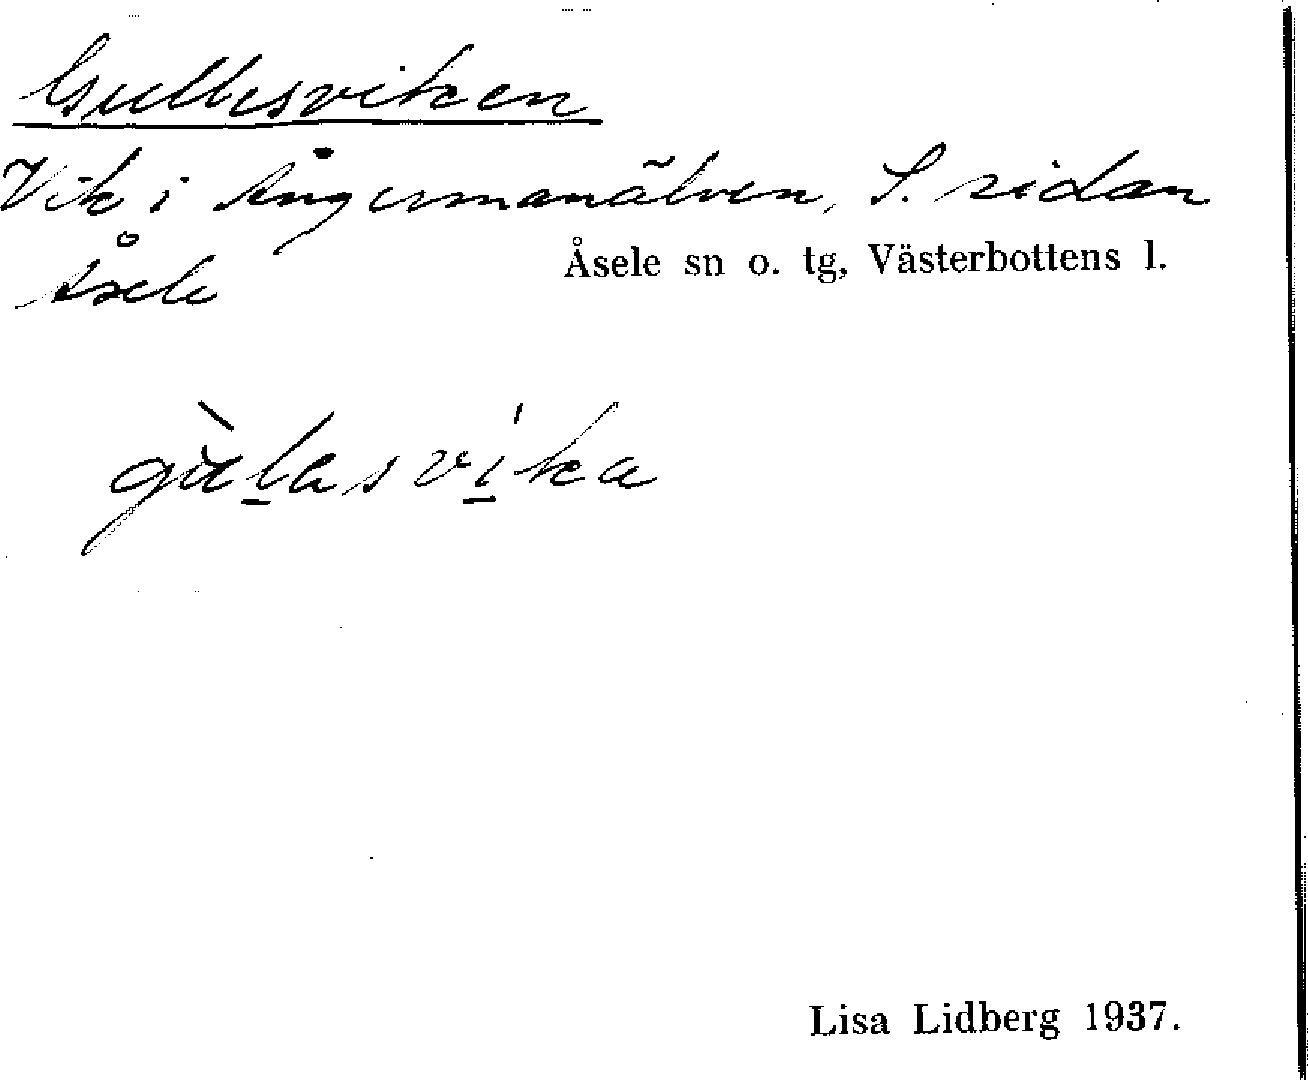 Gullesviken
Vik i Ångermanälven, S. sidan
Åsele
Åsele sn o. tg, Västerbottens l.
gùlasvíka
Lisa Lidberg 1937.